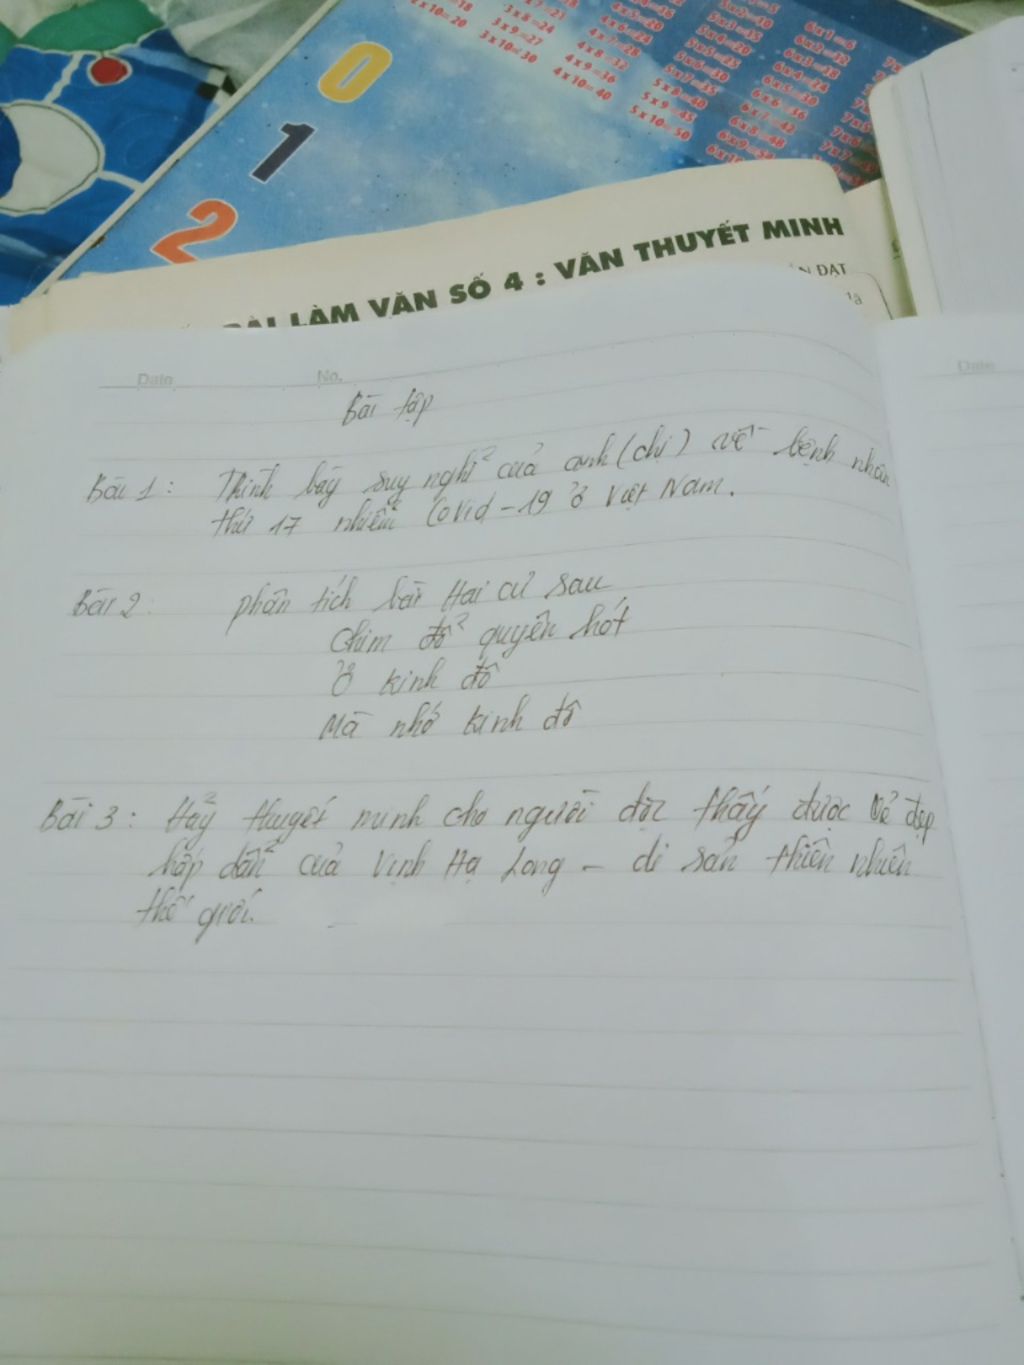 0
1
2
2x10=20
3x8=24
3x9=27
3x10=30
4x5=20
4x6=24
4x7=28
4x8=32
4x9=36
4x10=40
5x3=15
5x4=20
5x5=25
5x6=30
5x7=35
5x8=40
5x9=45
5x10=50
6x1=6
6x2=12
6x3=18
6x4=24
6x5=30
6x6=36
6x7=42
6x8=48
BÀI LÀM VĂN SỐ 4 : VĂN THUYẾT MINH
ĐẠT
Date No.
Date
Bài tập
Bài 1 : Trình bày suy nghĩ của anh (chị) về bệnh nhân
thứ 17 nhiễm Covid - 19 ở Việt Nam.
Bài 2 : phân tích bài Hai cư sau
Chim đỗ quyên hót
Ở kinh đô
Mà nhớ kinh đô
Bài 3 : Hãy thuyết minh cho người đọc thấy được vẻ đẹp
hấp dẫn của Vịnh Hạ Long - di sản thiên nhiên
thế giới.